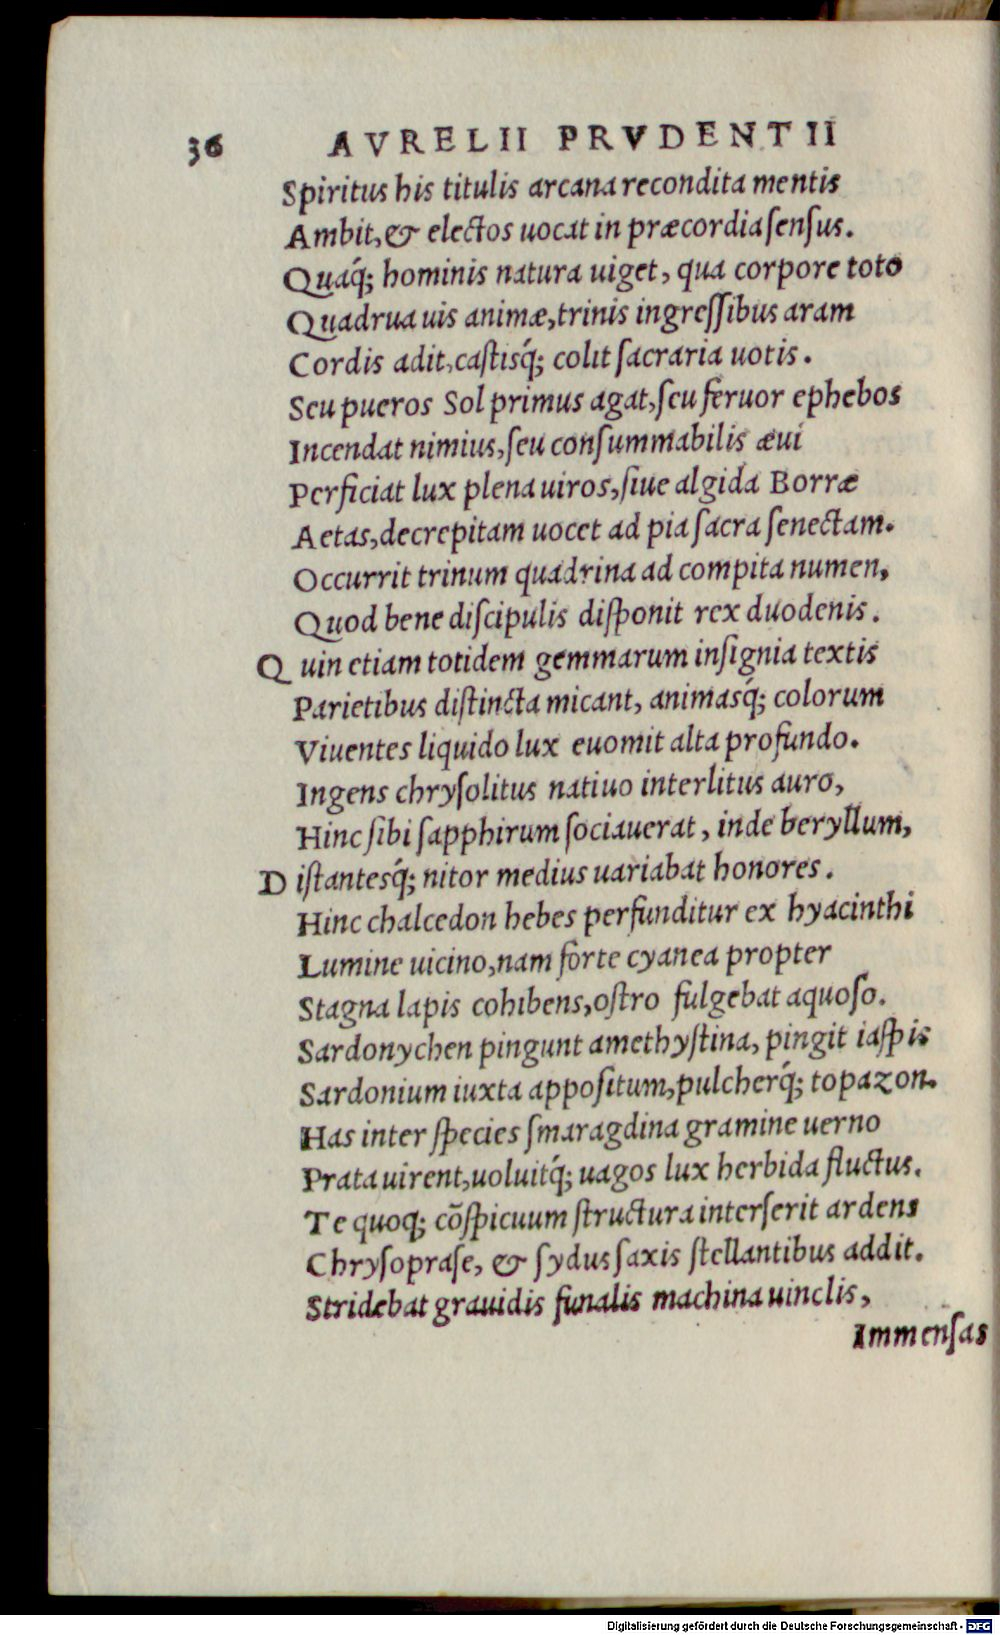 36 AVRELII PRVDENTII
Spiritus his titulis arcana recondita mentis
Ambit, & electos uocat in præcordia ſenſus.
Quaq́; hominis natura uiget, qua corpore toto
Quadrua uis animæ, trinis ingreſſibus aram
Cordis adit, caſtisq́; colit ſacraria uotis.
Seu pueros Sol primus agat, ſeu feruor ephebos
Incendat nimius, ſeu conſummabilis æui
Perficiat lux plena uiros, ſiue algida Borræ
Aetas, decrepitam uocet ad pia ſacra ſenectam.
Occurrit trinum quadrina ad compita numen,
Quod bene diſcipulis diſponit rex duodenis.
Quin etiam totidem gemmarum inſignia textis
Parietibus diſtincta micant, animasq́; colorum
Viuentes liquido lux euomit alta profundo.
Ingens chryſolitus natiuo interlitus auro,
Hinc ſibi ſapphirum ſociauerat, inde beryllum,
Diſtantesq́; nitor medius uariabat honores.
Hinc chalcedon hebes perfunditur ex hyacinthi
Lumine uicino, nam forte cyanea propter
Stagna lapis cohibens, oſtro fulgebat aquoſo.
Sardonychen pingunt amethyſtina, pingit iaſpis
Sardonium iuxta appoſitum, pulcherq́; topazon.
Has inter ſpecies ſmaragdina gramine uerno
Prata uirent, uoluitq́; uagos lux herbida fluctus.
Te quoq; cõſpicuum ſtructura interſerit ardens
Chryſopraſe, & ſydus ſaxis ſtellantibus addit.
Stridebat grauidis funalis machina uinclis,
Immenſas
Digitalisierung gefördert durch die Deutsche Forschungsgemeinschaft - DFG